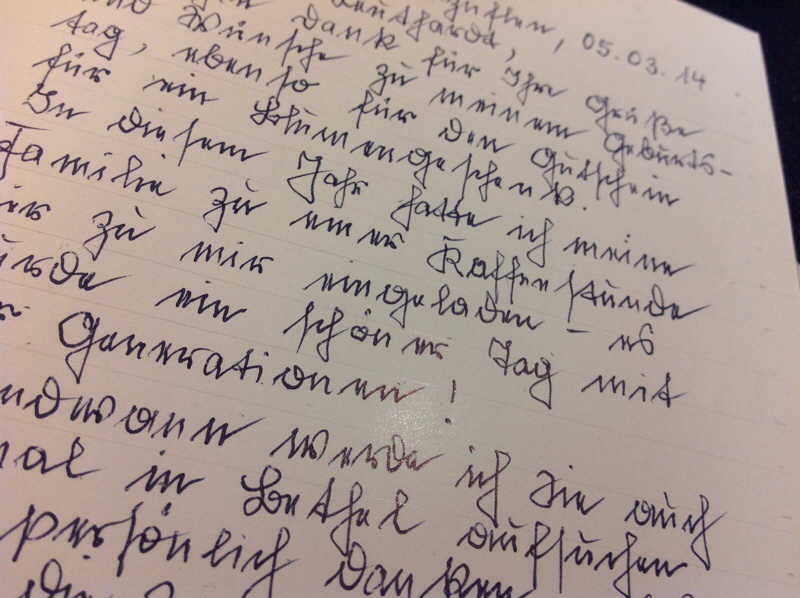 05.03.14
Dank für Ihre Grüße
und Wünsche zu meinem Geburts-
tag, ebenso für den Gutschein
für ein Blumengeschenk.
In diesem Jahr hatte ich meine
Familie zu einer Kaffeestunde
zu mir eingeladen – es
ein schöner Tag mit
Generationen!
werde ich Sie auch
in Bethel aufsuchen
persönlich danken